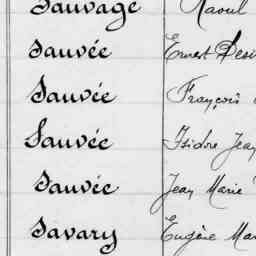 Sauvage Raoul
Sauvée Ernest Dési
Sauvée François
Sauvée Isidore Jean
Sauvée Jean Marie
Savary Eugène Mar